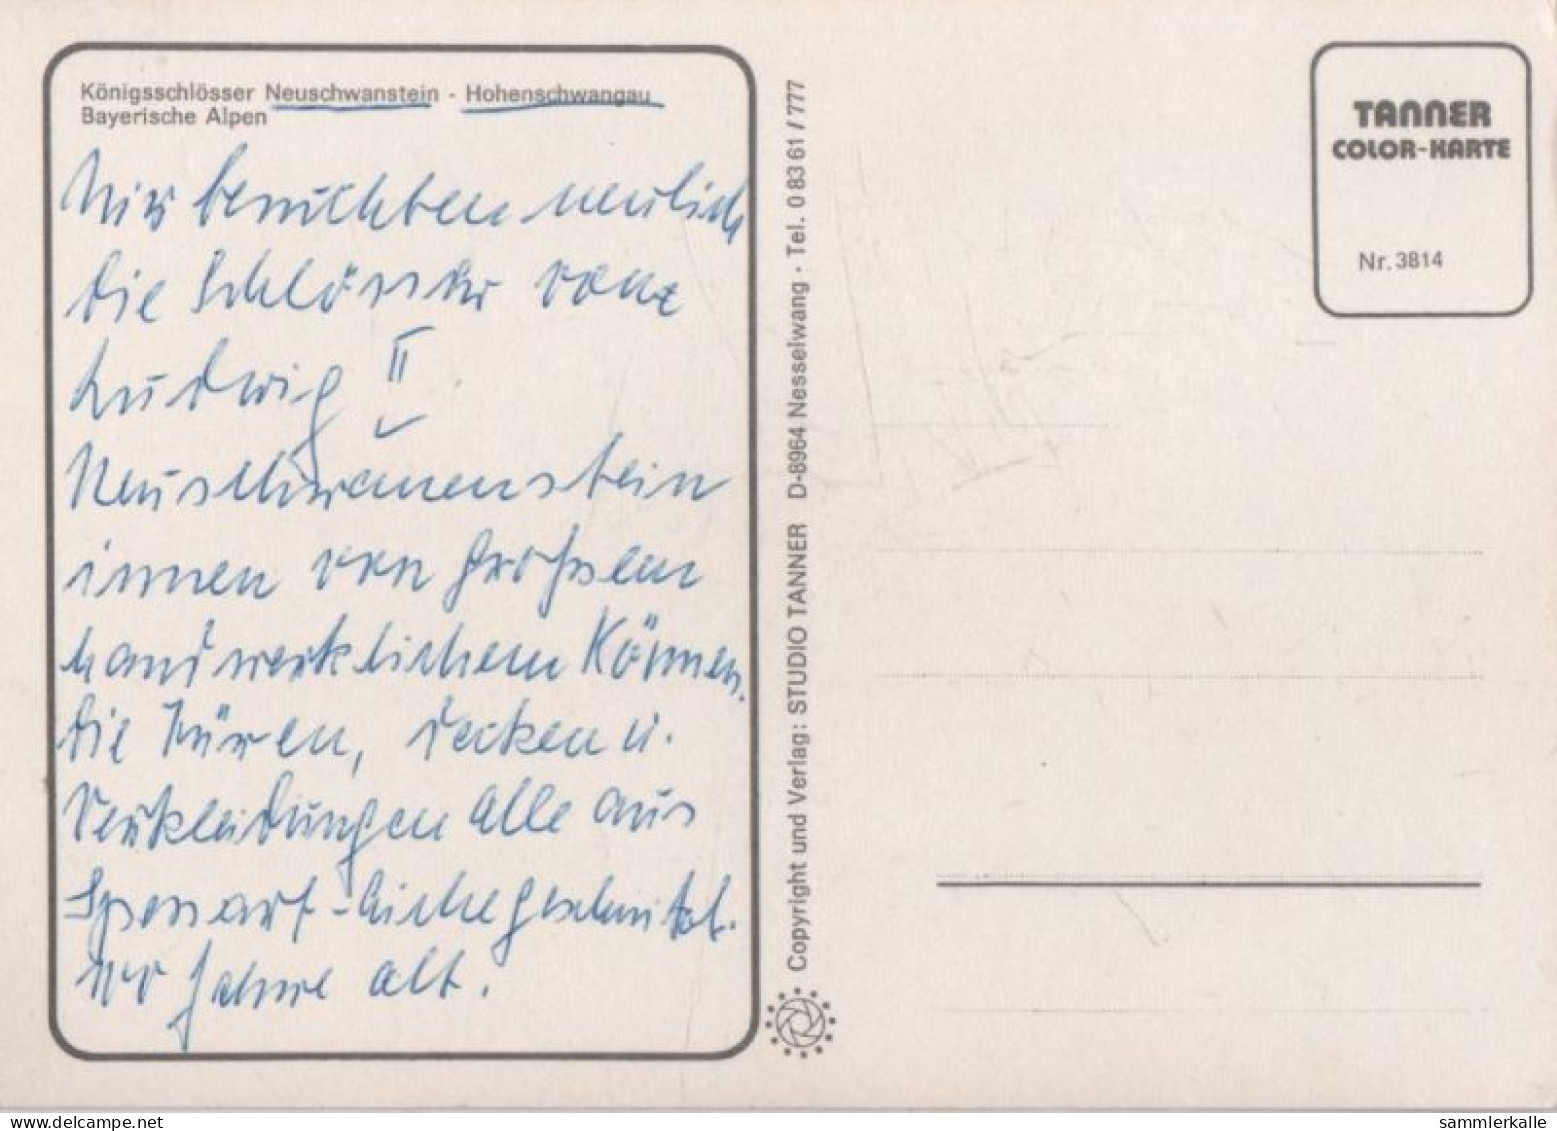 Königsschlösser Neuschwanstein - Hohenschwangau
Bayerische Alpen
Wir besuchten neulich
die Schlösser von
Ludwig II
Neuschwanenstein
innen von großem
handwerklichem Können.
Die Türen, Decken u.
Verkleidungen alle aus
Spessart-Eiche geschnitzt.
110 Jahre alt.
Copyright und Verlag: STUDIO TANNER D-8964 Nesselwang · Tel. 0 83 61 / 777
TANNER
COLOR-KARTE
Nr. 3814
sammlerkalle